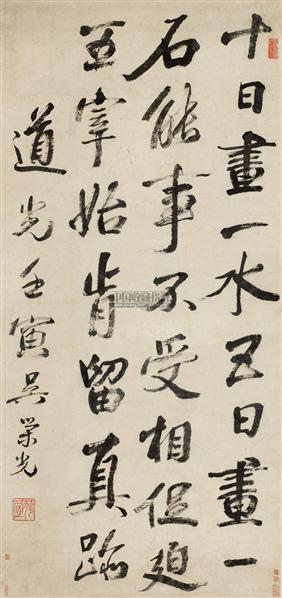 十日畫一水五日畫一
石能事不受相促迫
王宰始肯留真跡
道光壬寅吳榮光